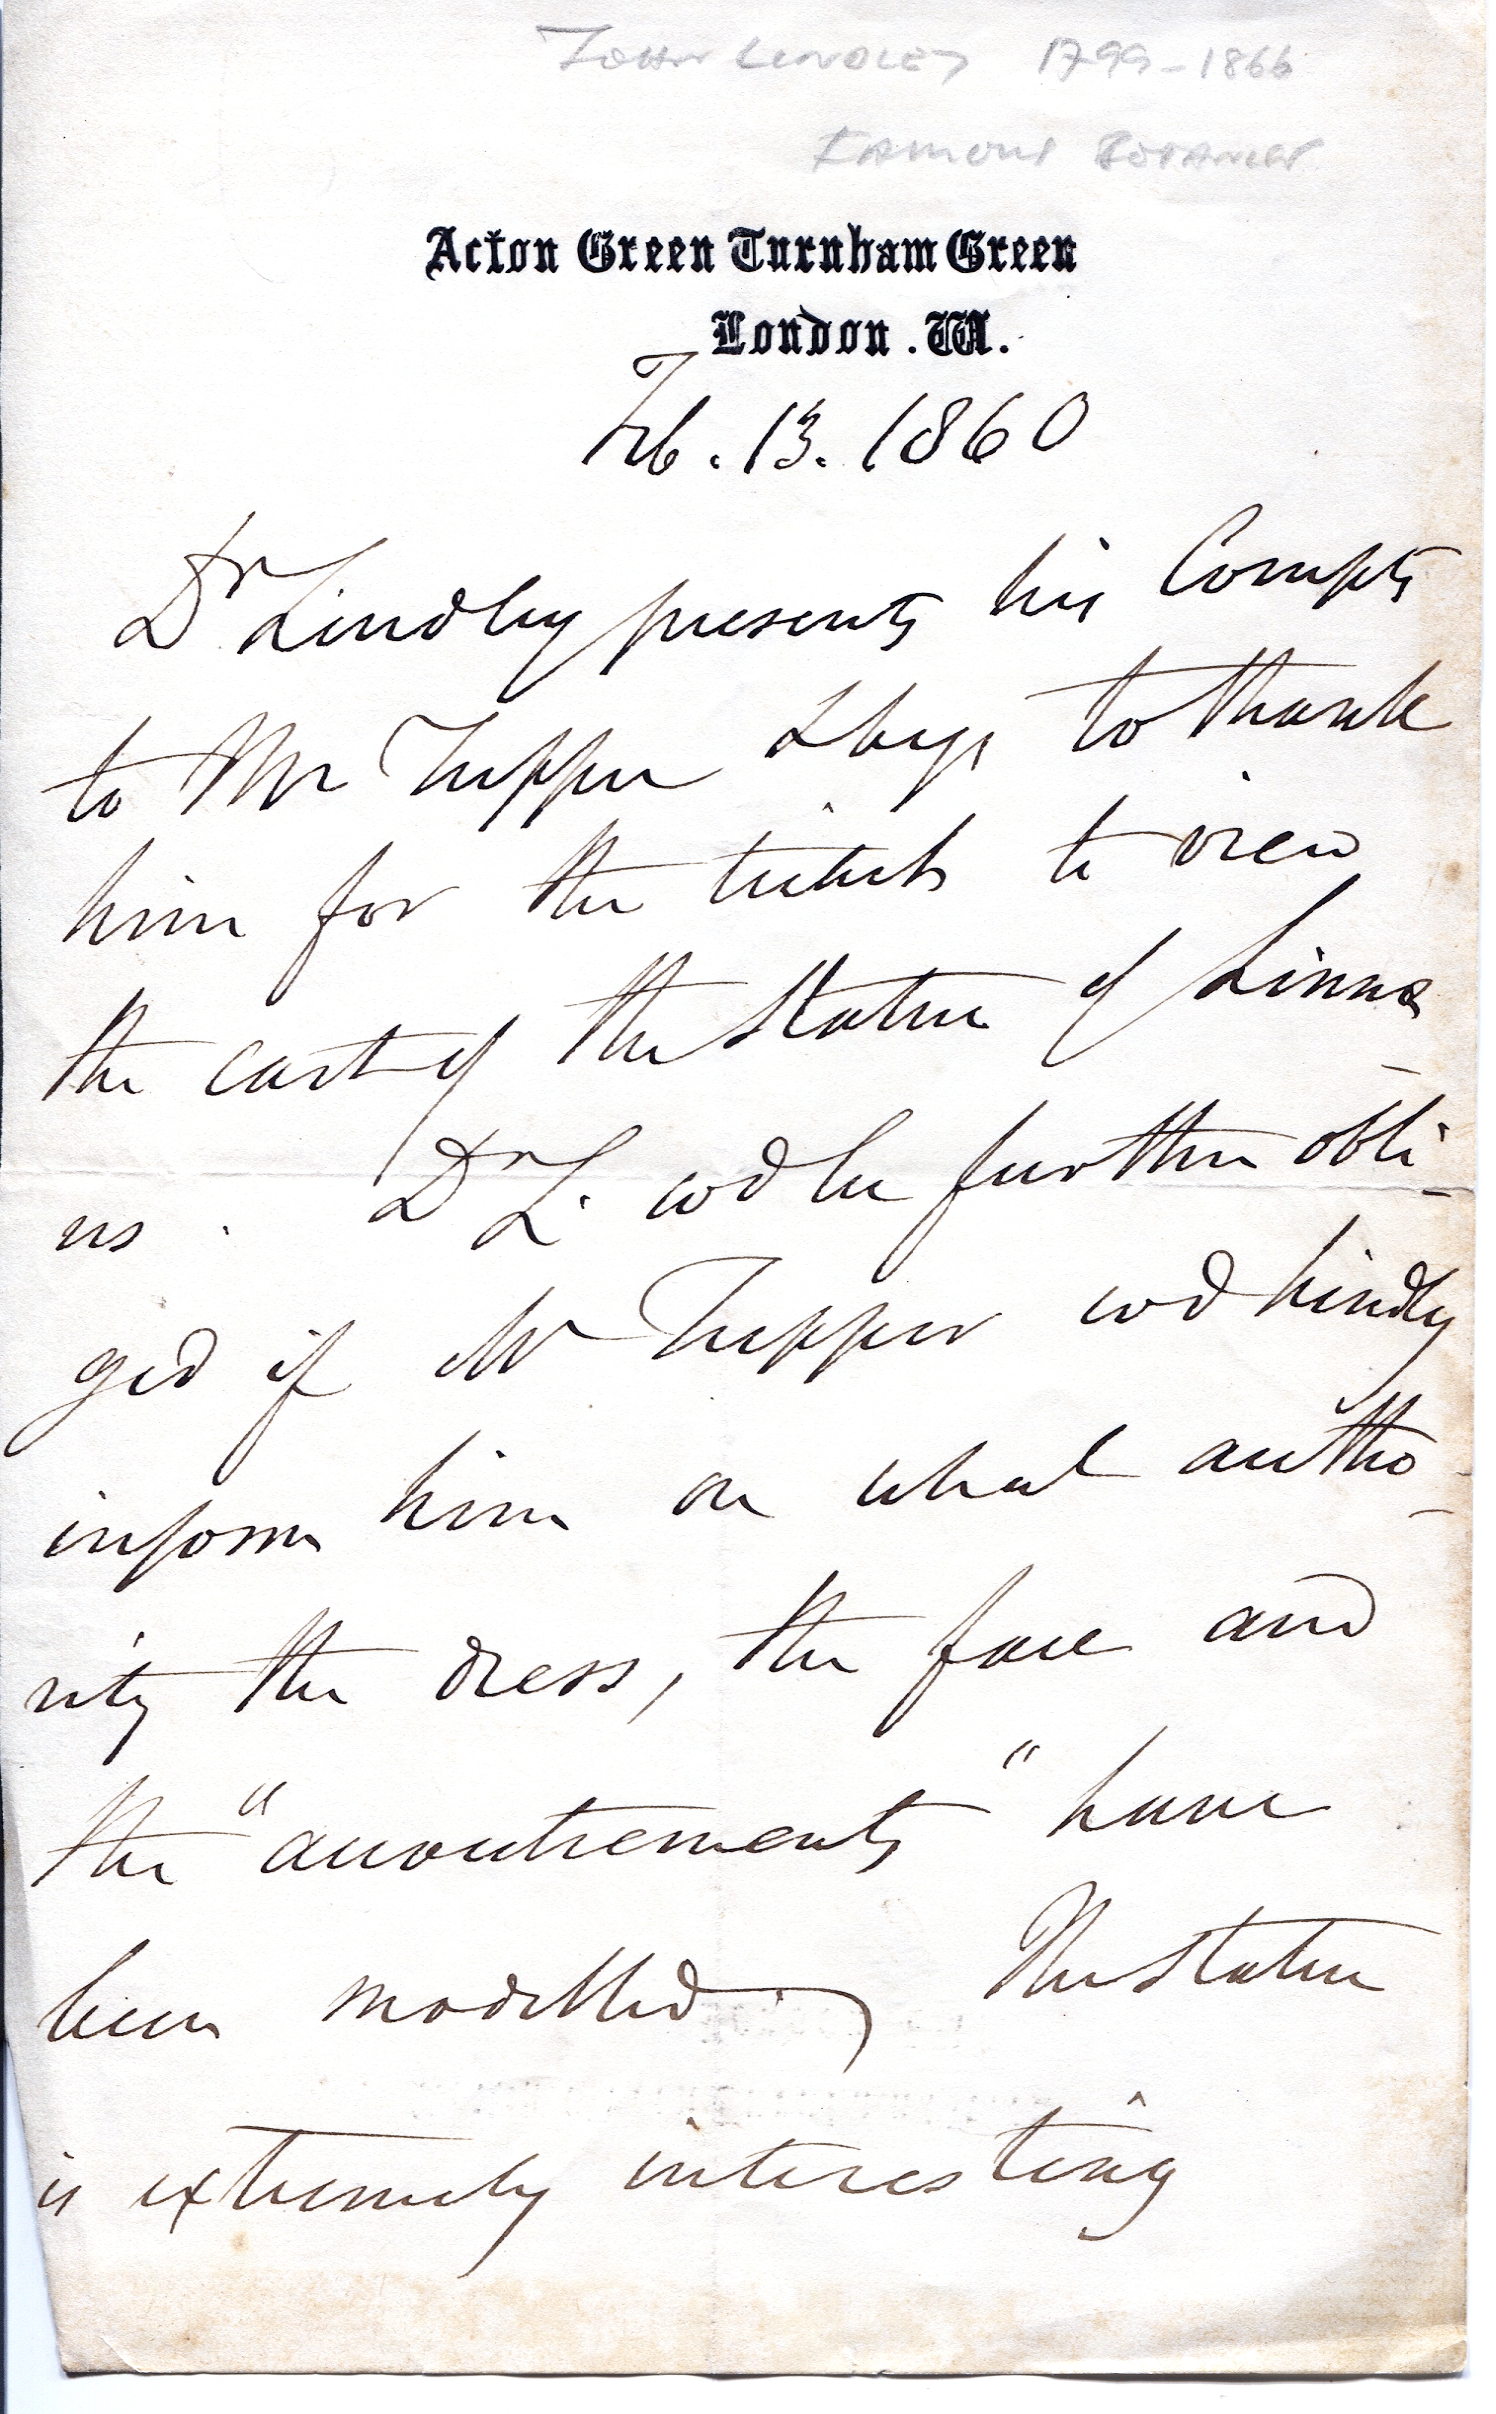 JOHN LINDLEY 1799-1866
FAMOUS BOTANIST
Acton Green Turnham Green
London. W.
Feb. 13. 1860
Dr Lindley presents his Compts
to Mr Tupper & begs to thank
him for the tickets to view
the cast of the Statue of Linnæ-
us. Dr L. wd be further obli-
ged if Mr Tupper wd kindly
inform him on what autho-
rity the dress, the face and
the "accoutrements" have
been modelled. The Statue
is extremely interesting